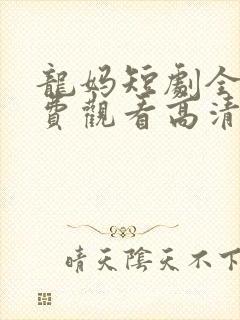 龍媽短劇全
費觀看高清
晴天陰天不下